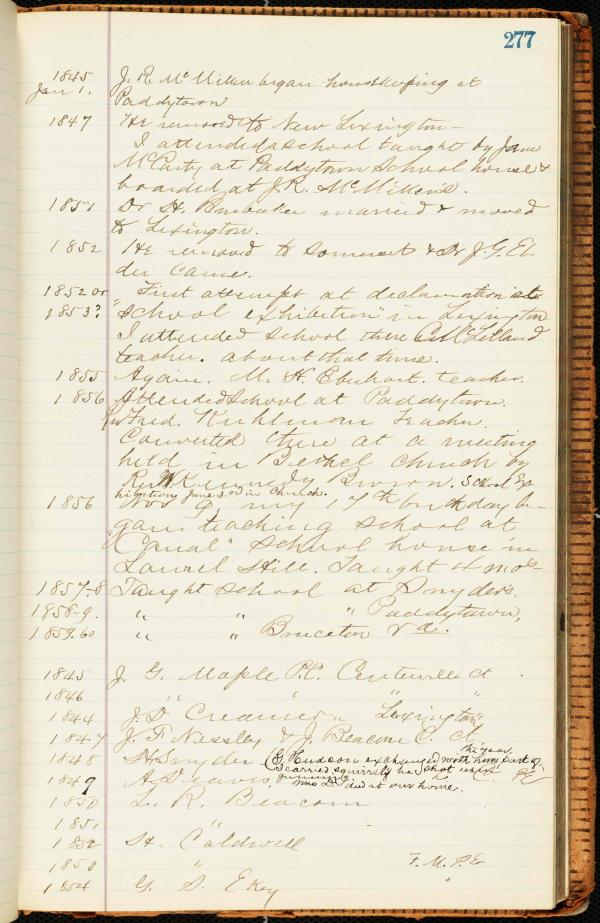 277
1845 J. R. McMillen began housekeeping at
Jan 1. Paddytown
1847 He removed to New Lexington—
I attended a school taught by Jane
McCarty at Paddytown School house &
boarded at J. R. McMillens.
1851 Dr H. Brubaker married & moved
to Lexington.
1852 He removed to Somerset & Dr J. G. El-
der came.
1852 or First attempt at declamation at a
1853? "School exhibition" in Lexington
I attended school there McLelland
teacher. about that time.
1855 Again. M. H. Eberhart. teacher.
1856 Attended School at Paddytown.
Rev Fred. Kuhlman Teacher.
Converted there at a meeting
held in Bethel church by
Rev W Kennedy Brown. School Ex-
hibition June 3rd in Church.
1856 Nov 9 my 17th birthday be-
gan teaching school at
"Canal" school house in
Laurel Hill. Taught 4 mos
1857-8 Taught school at Snyders.
1858-9. " " " Paddytown,
1859.60 " " Bruceton Va.
1845 J. G. Maple P.C. Centerville Ct
1846 " " " "
1844 J. D. Creamer " Lexington "
1847 J. F. Nessley & J. Beacom C. Ct
this year.
1848 H Snyder (G. Hudson exchanged with him part of
I carried squirrels he shot when
1849 A. D. gunning.
Mrs D. died at our home.
1850 L. R. Beacom
1851 "
1852 H. Caldwell
1853 " F. M. P. E
1854 G. S. Ekey "